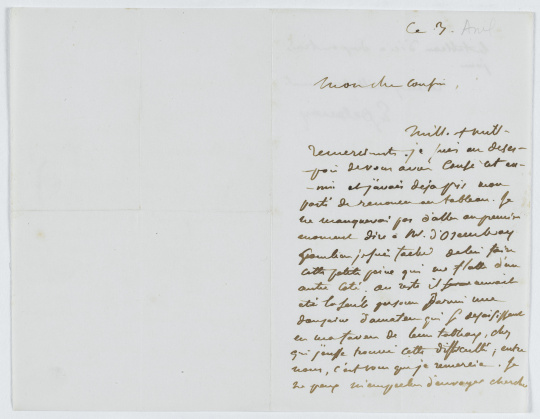 Ce 3. Avril
Mon cher cousin,
Mille & mille
remerciements. je suis au déses-
poir de vous avoir causé cet en-
nui et j'avais déjà pris mon
parti de renoncer au tableau. Je
ne manquerai pas d'aller au premier
moment dire à M. d'Osembray
combien je suis touché de lui faire
cette petite peine qui me flatte d'un
autre côté. au reste il
été la seule personne parmi une
douzaine d'amateurs qui se dessaisissent
en ma faveur de leur tableau, chez
qui j'eusse trouvé cette difficulté; entre
nous, c'est vous que je remercie. Je
ne peux m'empêcher d'envoyer chercher